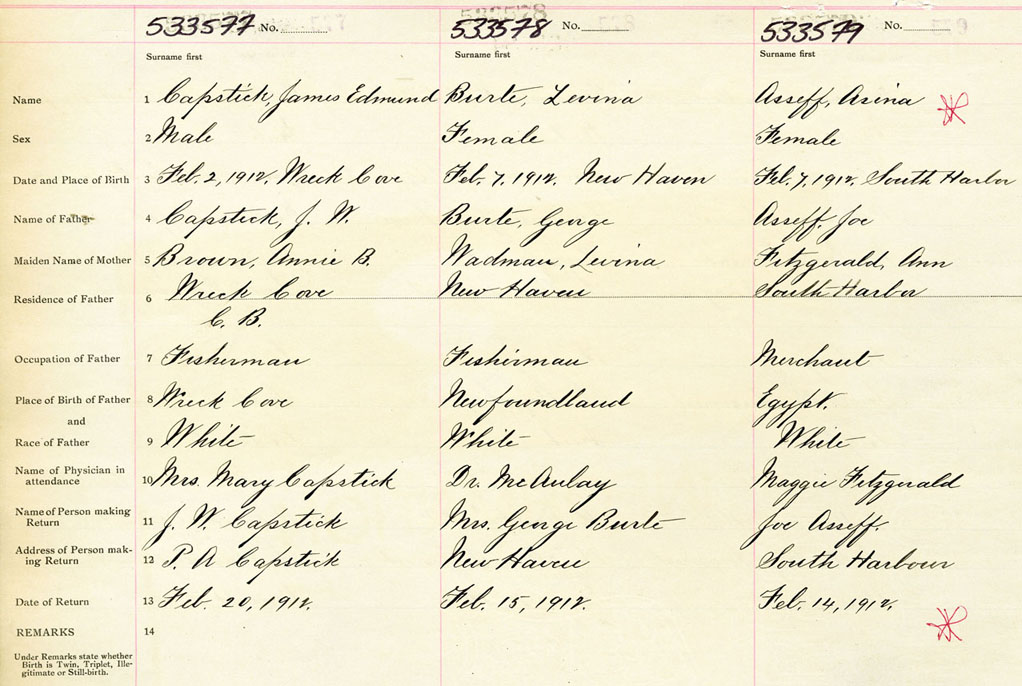 533577 No. 533578 No. 533579 No.
Surname first Surname first Surname first
Name 1 Capstick, James Edmund Burte, Levina Asseff, Asina
Sex 2 Male Female Female
Date and Place of Birth 3 Feb. 2, 1912. Wreck Cove Feb. 7, 1912. New Haven Feb. 7, 1912. South Harbor
Name of Father 4 Capstick, J. W. Burte, George Asseff, Joe
Maiden Name of Mother 5 Brown, Annie B. Wadman, Levina Fitzgerald, Ann
Residence of Father 6 Wreck Cove New Haven South Harbor
C. B.
Occupation of Father 7 Fisherman Fisherman Merchant
Place of Birth of Father 8 Wreck Cove Newfoundland Egypt.
and
Race of Father 9 White White White
Name of Physician in
attendance 10 Mrs. Mary Capstick Dr. McAulay Maggie Fitzgerald
Name of Person making
Return 11 J. W. Capstick Mrs. George Burte Joe Asseff.
Address of Person mak-
ing Return 12 P. A Capstick New Haven South Harbour
Date of Return 13 Feb. 20, 1912. Feb. 15, 1912. Feb. 14, 1912.
REMARKS 14
Under Remarks state whether
Birth is Twin, Triplet, Ille-
gitimate or Still-birth.